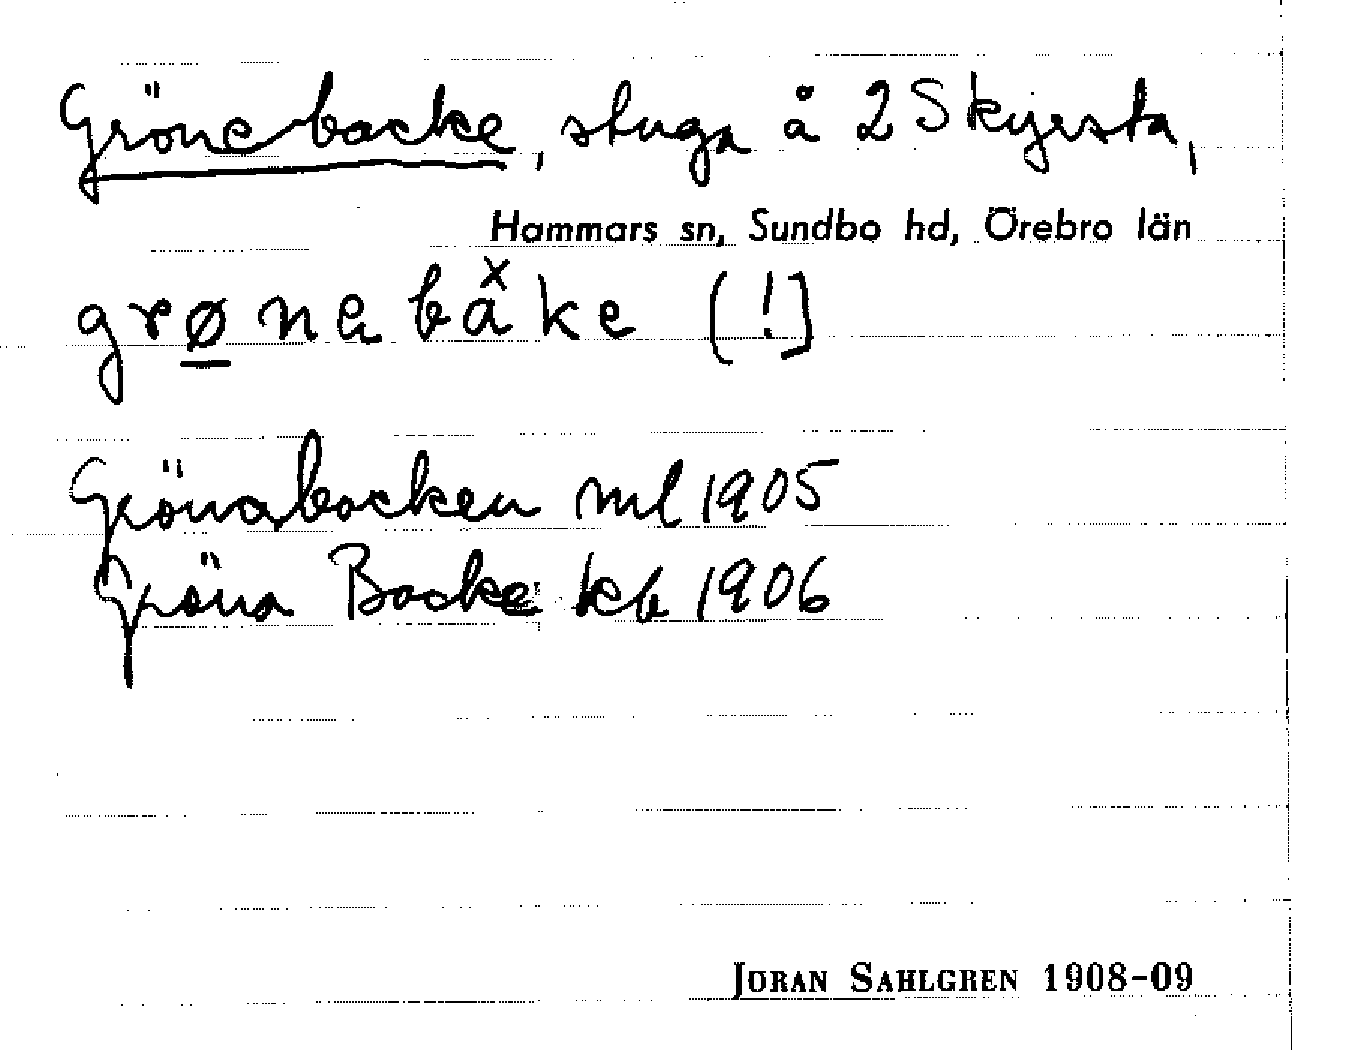 Grönebacke, stuga å 2 Skyrsta,
Hammars sn, Sundbo hd, Örebro län
grønabåke (!)
Grönabacken ml 1905
Gröna Backe kb 1906
JORAN SAHLGREN 1908-09